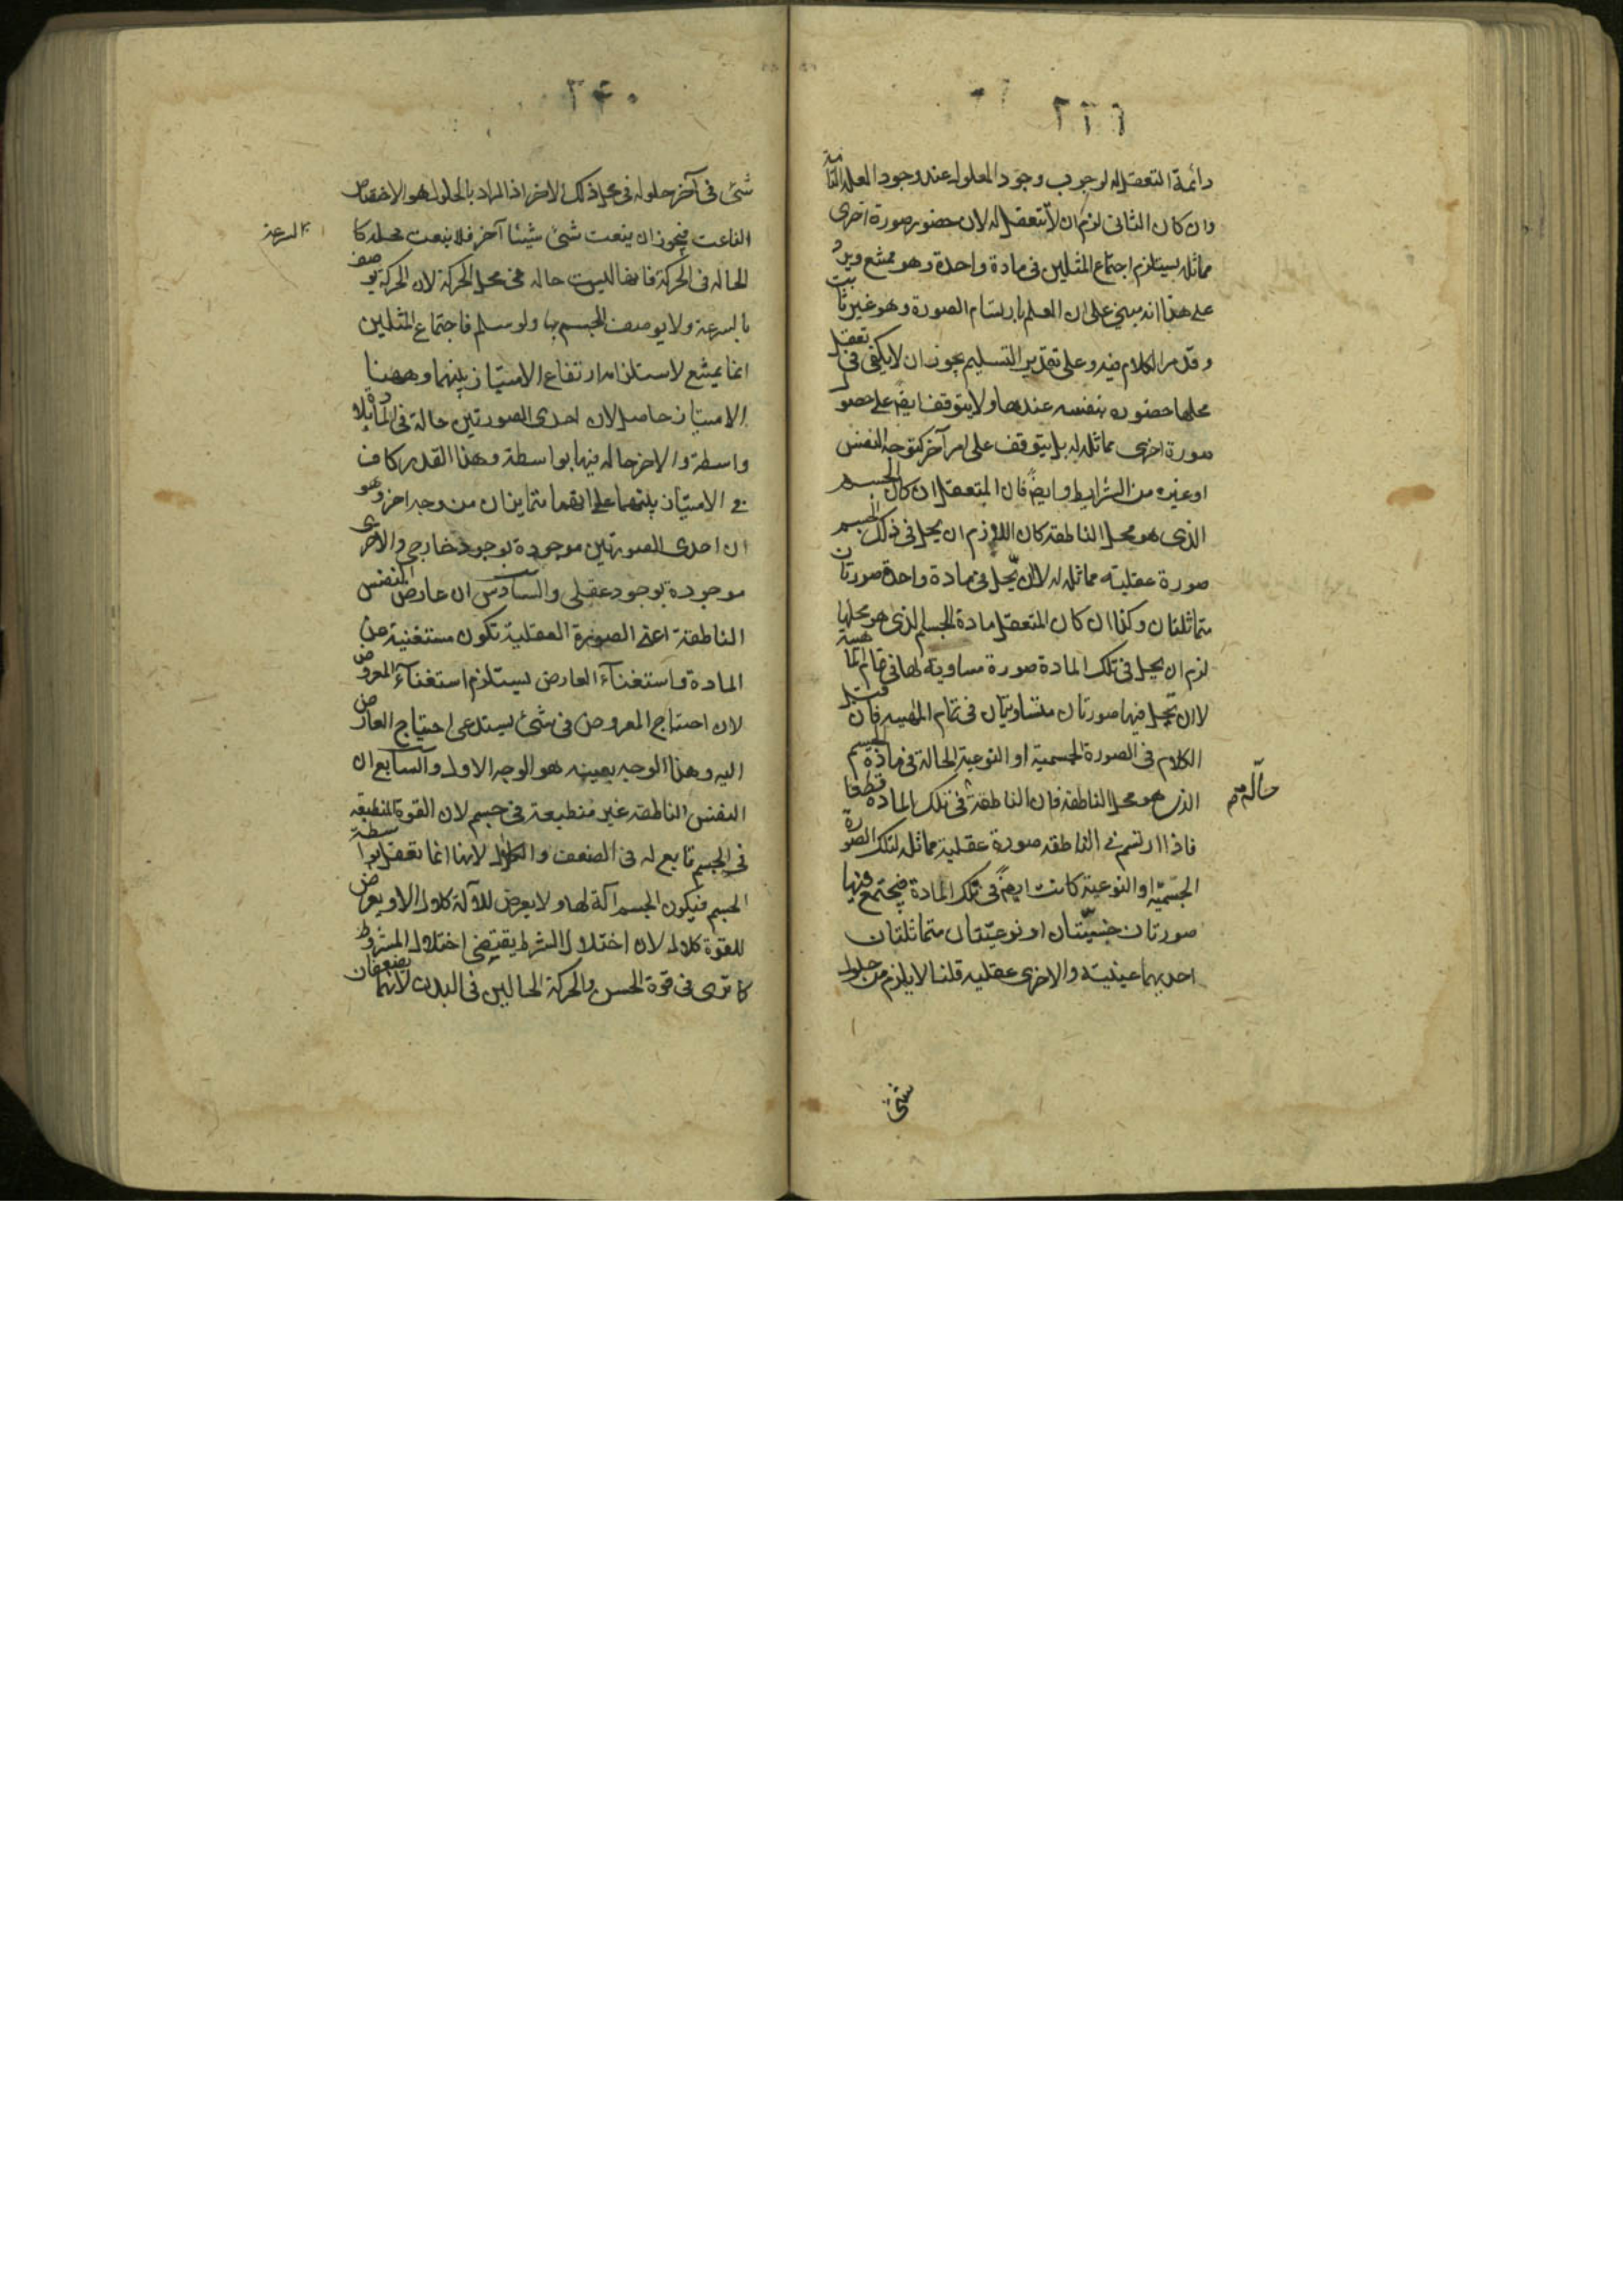 ٢٢٦
دائمة التعقل له لوجوب وجود المعلول عند وجود العلة التامة
وان كان الثانى لزم ان لا تتعقل له لان حضور صورة اخرى
مماثلة يستلزم اجتماع المثلين فى مادة واحدة وهو ممتنع ويرد
على هذا انه مبنى على ان العلم بارتسام الصورة وهو غير ثابت
وقد مر الكلام فيه وعلى تقدير التسليم يجوز ان لا يكفى فى تعقل
محلها حضوره بنفسه عندها ولا يتوقف ايضا على حضور
صورة اخرى مماثلة له بل يتوقف على امر آخر كتوجه النفس
او غيره من الشرايط وايضا فان المتعقل ان كان الجسم
الذى هو محل الناطقة كان اللازم ان يحل فى ذلك الجسم
صورة عقلية مماثلة له لا ان يحل فى مادة واحدة صورتان
متماثلتان وكذا ان كان المتعقل مادة الجسم الذى هو محلها
لزم ان يحل فى تلك المادة صورة مساوية لها فى تمام الماهية
لا ان يحل فيها صورتان متساويتان فى تمام المهية فان قيل
الكلام فى الصورة الجسمية او النوعية الحالة فى مادة الجسم
الذى هو محل الناطقة فان الناطقة فى تلك المادة قطعا
حالة
فاذا ارتسم فى الناطقة صورة عقلية مماثلة لتلك الصورة
الجسمية او النوعية كانت ايضا فى تلك المادة فيجتمع فيها
صورتان جسميتان او نوعيتان متماثلتان
احديهما عينية والاخرى عقلية قلنا لا يلزم من حلول
شئ
٢٤٠
شئ فى آخر حلوله فى محل ذلك الاخر اذ المراد بالحلول هو الاختصاص
الناعت فيجوز ان ينعت شئ شيئا آخر فلا ينعت محله كا
لسرعة
الحالة فى الحركة فانها ليست حالة فى محل الحركة لان الحركة يوصف
بالسرعة ولا يوصف الجسم بها ولو سلم فاجتماع المثلين
انما يمتنع لاستلزامه ارتفاع الامتياز بينهما وههنا
الامتياز حاصل لان احدى الصورتين حالة فى المادة بلا
واسطة والاخر حالة فيها بواسطة وهذا القدر كاف
فى الامتياز بينهما على انهما متمايزان من وجه اخر وهو
ان احدى الصورتين موجودة بوجود خارجى والاخرى
موجودة بوجود عقلى والسادس ان عارض النفس
الناطقة اعنى الصورة العقلية تكون مستغنية عن
المادة واستغناء العارض يستلزم استغناء المعروض
لان احتياج المعروض فى شئ يستدعى احتياج العارض
اليه وهذا الوجه بعينه هو الوجه الاول والسابع ان
النفس الناطقة غير منطبعة فى جسم لان القوة المنطبعة
فى الجسم تابع له فى الضعف والكلال لانها انما تعقل بواسطة
الجسم فيكون الجسم آلة لها ولا يعرض للآلة كلال الا ويعرض
للقوة كلال لان اختلال الشرط يقتضى اختلال المشروط
كما ترى فى قوة الحس والحركة الحالين فى البدن لانهما يضعفان